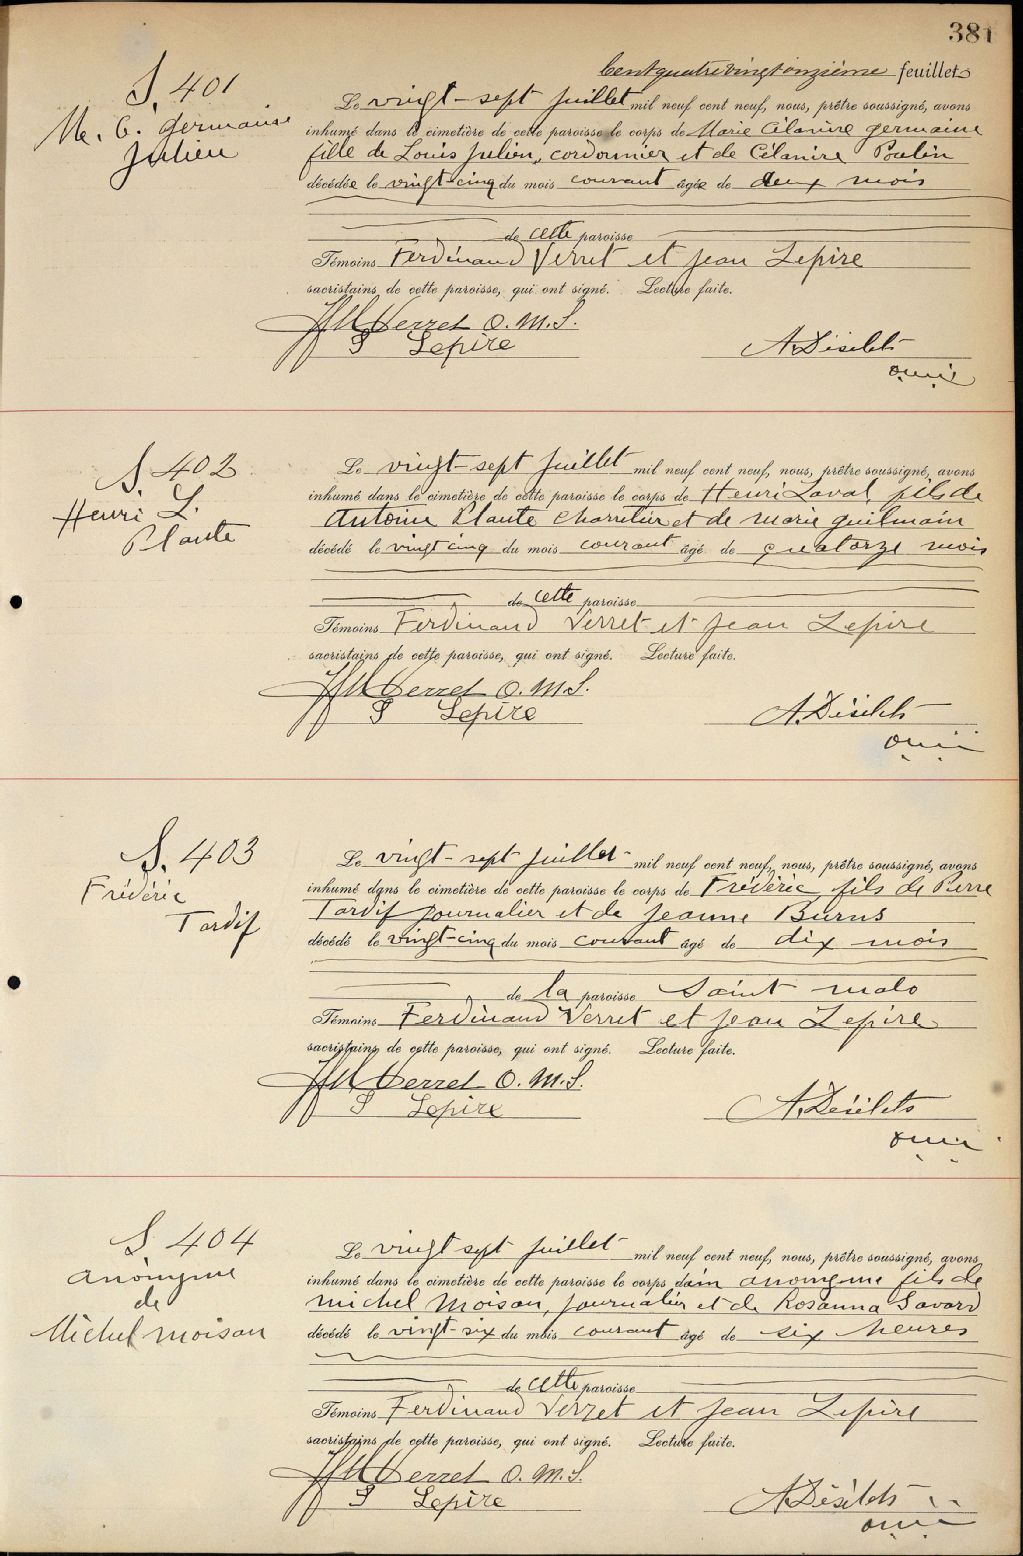 381
Cent quatre vingt onzième feuillet
S. 401
M. C. Germaine
Julien
Le vingt-sept Juillet mil neuf cent neuf, nous, prêtre soussigné, avons
inhumé dans le cimetière de cette paroisse le corps de Marie Célanire Germaine
fille de Louis Julien, cordonnier et de Célanire Poulin
décédée le vingt-cinq du mois courant âgée de deux mois
de cette paroisse
Témoins Ferdinand Verret et Jean Lepire
sacristains de cette paroisse, qui ont signé. Lecture faite.
Verret O.M.S.
Lepire
A. Désilets
S. 402
Henri L.
Plante
Le vingt-sept Juillet mil neuf cent neuf, nous, prêtre soussigné, avons
inhumé dans le cimetière de cette paroisse le corps de Henri Laval, fils de
Antoine Plante charretier et de Marie Guilmain
décédé le vingt cinq du mois courant âgé de quatorze mois
de cette paroisse
Témoins Ferdinand Verret et Jean Lepire
sacristains de cette paroisse, qui ont signé. Lecture faite.
Verret O.M.S.
Lepire
A. Désilets
S. 403
Frédéric
Tardif
Le vingt-sept Juillet mil neuf cent neuf, nous, prêtre soussigné, avons
inhumé dans le cimetière de cette paroisse le corps de Frédéric, fils de Pierre
Tardif journalier et de Jeanne Burns
décédé le vingt-cinq du mois courant âgé de dix mois
de la paroisse Saint Malo
Témoins Ferdinand Verret et Jean Lepire
sacristains de cette paroisse, qui ont signé. Lecture faite.
Verret O.M.S.
Lepire
A. Désilets
S. 404
Anonyme
de
Michel Moisan
Le vingt sept Juillet mil neuf cent neuf, nous, prêtre soussigné, avons
inhumé dans le cimetière de cette paroisse le corps d'un anonyme fils de
Michel Moisan, journalier et de Rosanna Savard
décédé le vingt-six du mois courant âgé de six heures
de cette paroisse
Témoins Ferdinand Verret et Jean Lepire
sacristains de cette paroisse, qui ont signé. Lecture faite.
Verret O.M.S.
Lepire
A. Désilets